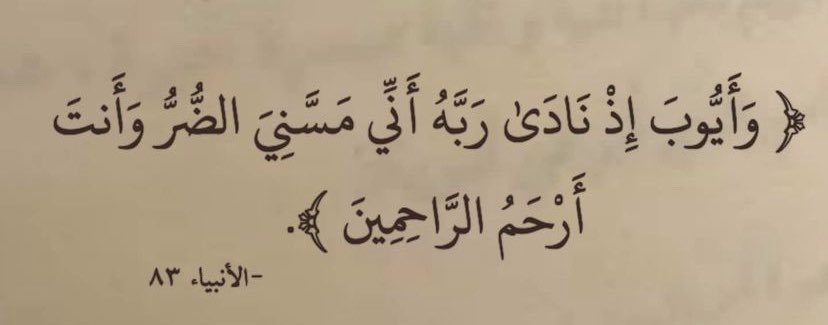 ﴿ وَأَيُّوبَ إِذْ نَادَىٰ رَبَّهُ أَنِّي مَسَّنِيَ الضُّرُّ وَأَنتَ
أَرْحَمُ الرَّاحِمِينَ ﴾.
-الأنبياء ٨٣